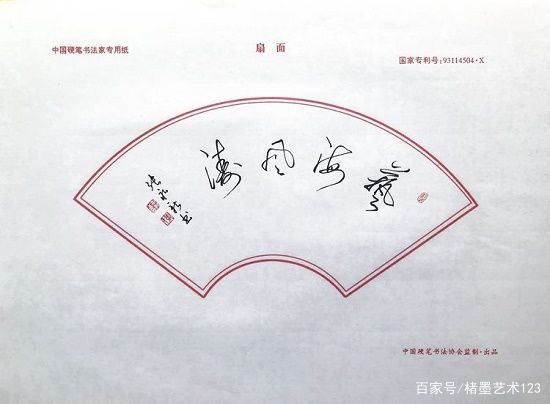 扇面
中国硬笔书法家专用纸
国家专利号:93114504·X
藝海风涛
中国硬笔书法协会监制·出品
百家号/楮墨艺术123